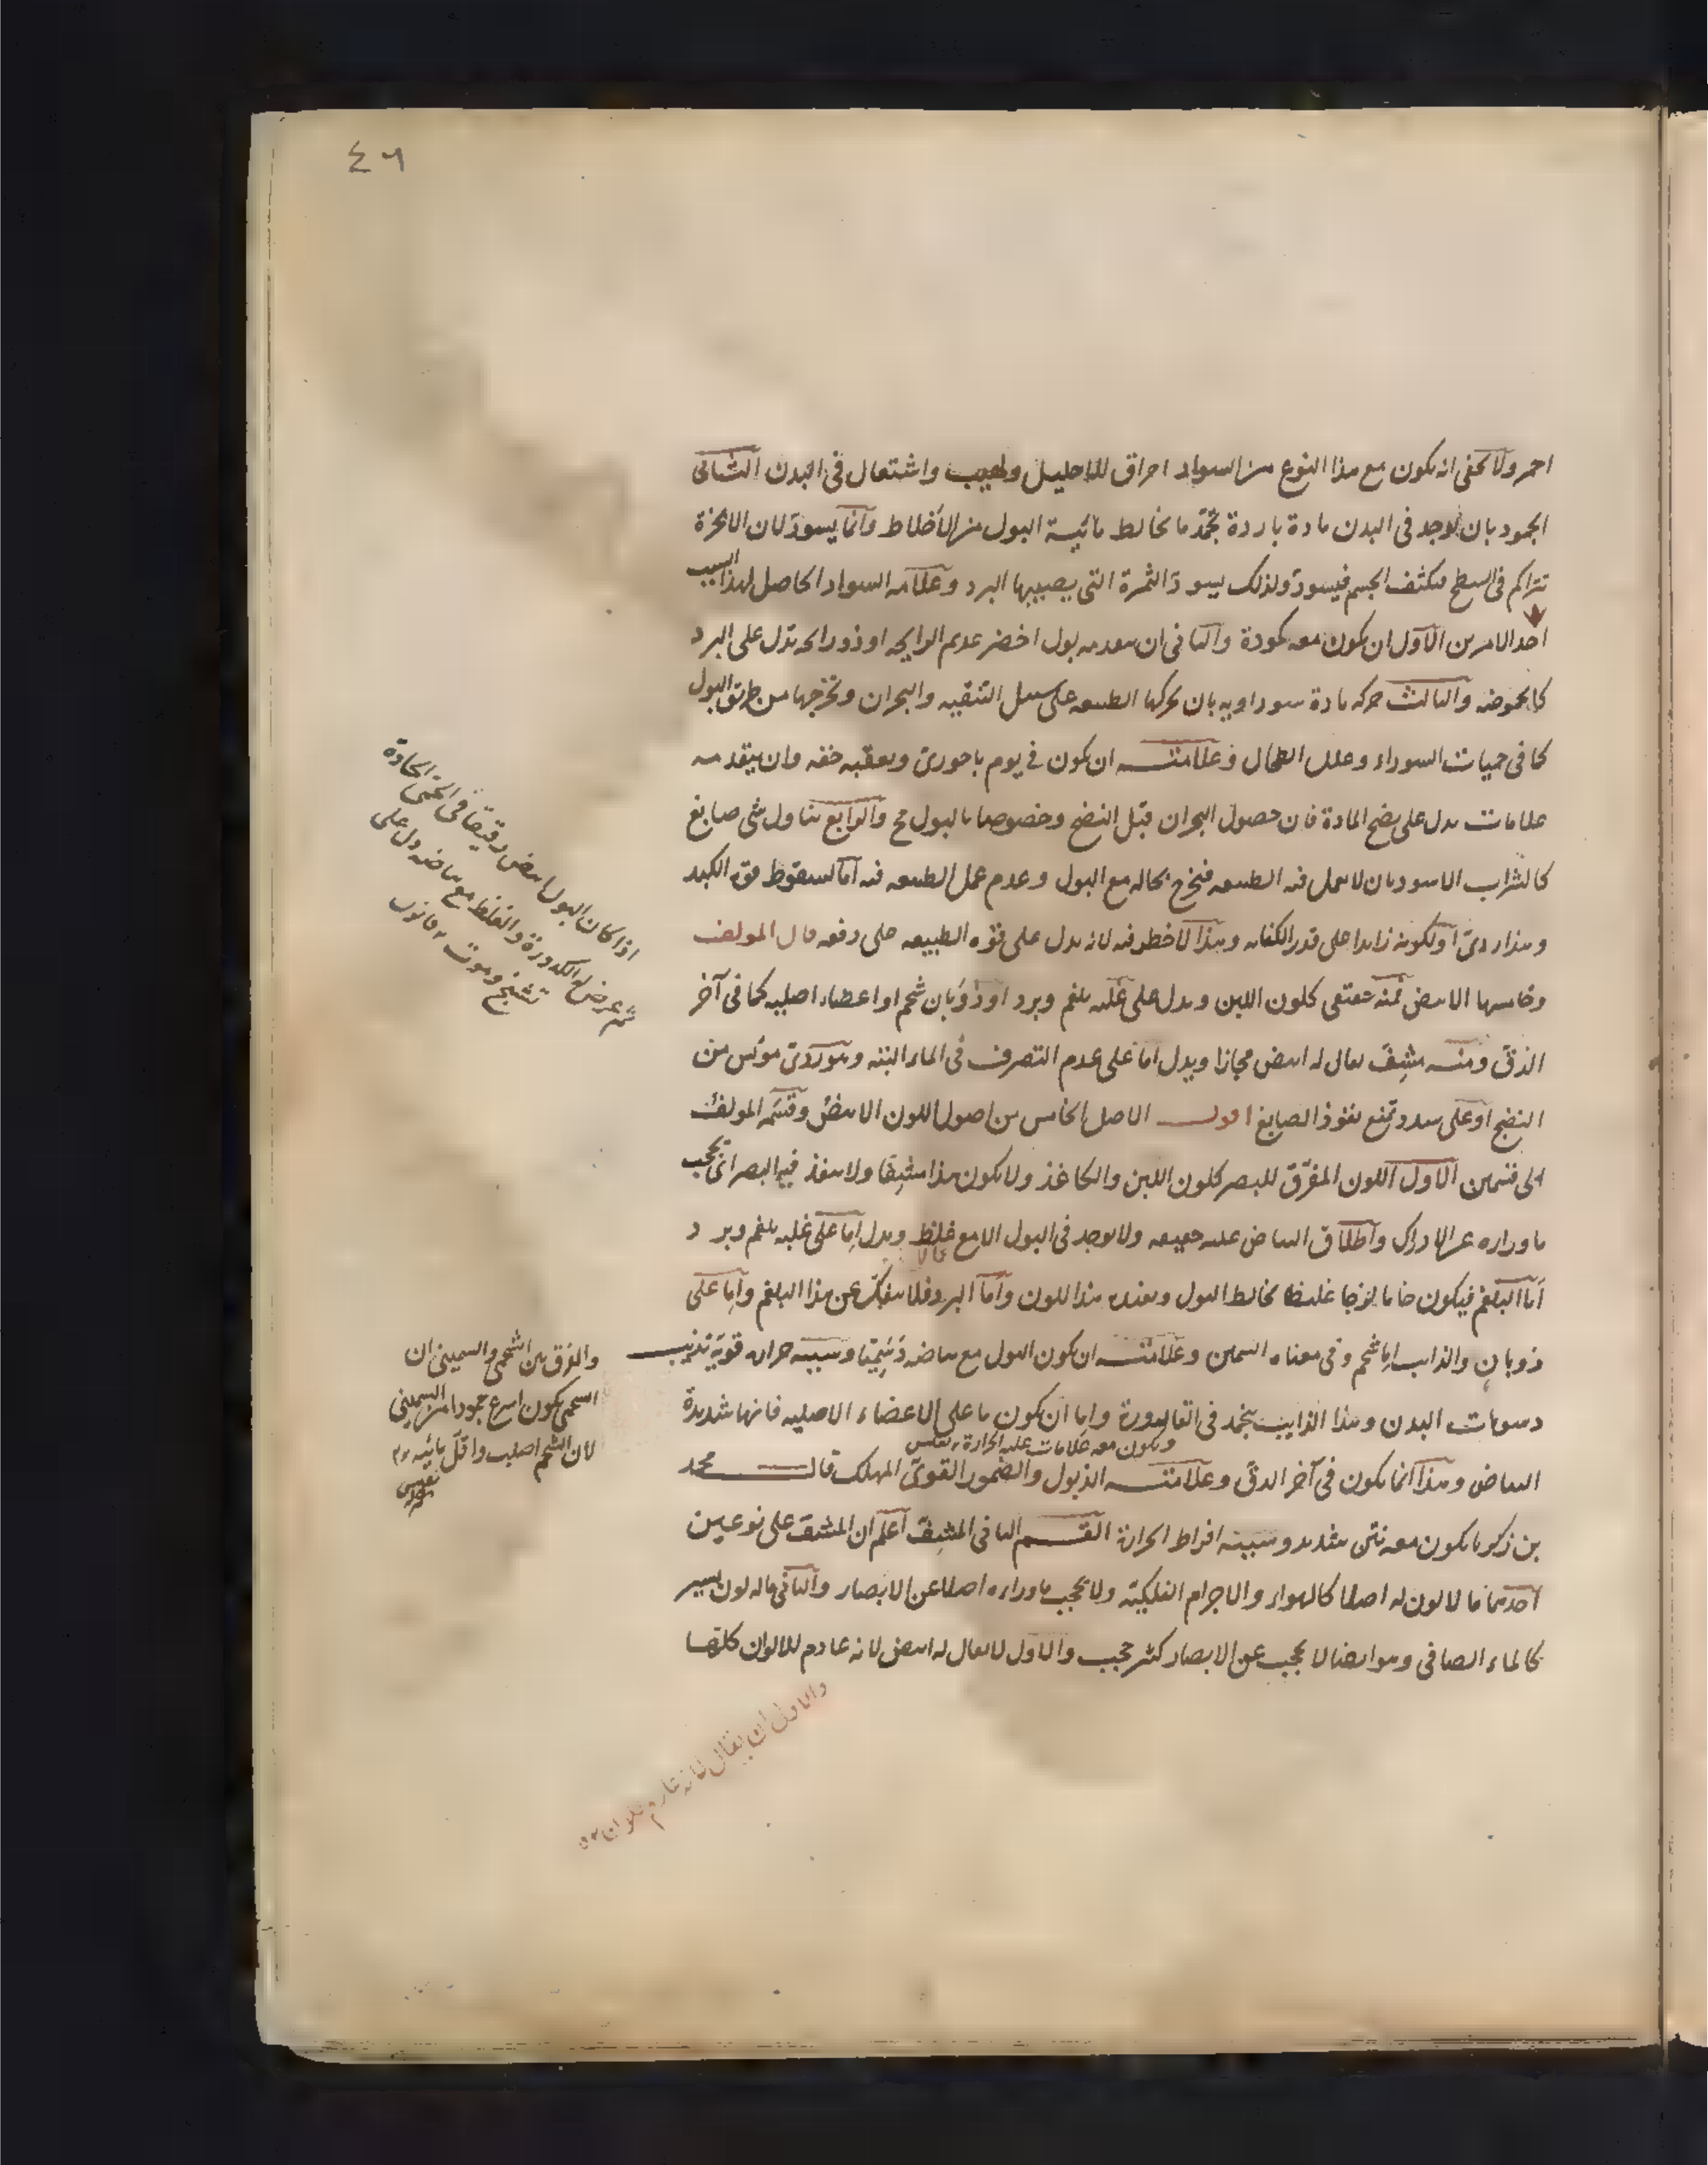 ٤٦
احمر ولا يخفى انه يكون مع هذا النوع من السواد احراق للاحليل ولهيب واشتعال فى البدن الثانى
الجمود بان يوجد فى البدن مادة باردة تجمّد ما يخالط مائية البول من الأخلاط وانما يسودّ لان الابخرة
تتراكم فى السطح فيكثف الجسم فيسودّ ولذلك يسودّ الثمرة التى يصيبها البرد وعلامه السواد الحاصل لهذا السبب
احد الامرين الاول ان يكون معه كمودة والثانى ان يتقدمه بول اخضر عديم الرايحه او ذو رايحه تدل على البرد
كالحموضه والثالث حركه مادة سوداويه بان يحركها الطبيعه على سبيل التنقيه والبحران وتخرجها من طريق البول
كما فى حميات السوداء وعلل الطحال وعلامتـه ان يكون فى يوم باحورىّ ويعقبه خفه وان يتقدمه
علامات يدل على نضج المادة فان حصول البحران قبل النضج وخصوصا بالبول مح والرابع تناول شى صابغ
كالشراب الاسود بان لا يعمل فيه الطبيعه فيخرج بحاله مع البول وعدم عمل الطبيعه فيه اما لسقوط قوة الكبد
وهذا ردىّ او لكونه زايدا على قدر الكفايه وهذا لا خطر فيه لانه يدل على قوّه الطبيعه على دفعه قال المولف
وخامسها الابيض فمنه حقيقى كلون اللبن ويدل على غلبه بلغم وبرد او ذوبان شحم او اعضاء اصليه كما فى آخر
الدقّ ومنـه مشِفّ يقال له ابيض مجازا ويدل اما على عدم التصرف فى الماء البته وهو ردىّ موئس من
النضج او على سدد تمنع نفوذ الصابغ اقول الاصل الخامس من اصول اللون الابيض وقسّمه المولف
الى قسمين الاول اللون المفرّق للبصر كلون اللبن والكاغذ ولا يكون هذا مشِفّا ولا ينفذ فيه البصر اى يحجب
ما وراءه عن الادراك واطلاق البياض عليه حقيقه ولا يوجد فى البول الا مع غلظ ويدل اما على غلبه بلغم وبرد
اما البلغم فيكون خاما لزجا غليظا يخالط البول ويفيده هذا اللون واما البرد فلا ينفكّ عن هذا البلغم واما على
ذوبان والذايب اما شحم وفى معناه السمين وعلامتـه ان يكون البول مع بياضه دَسِمًا وسببه حرارة قويّة تذيب
دسومات البدن وهذا الذايب يجمد فى القارورة واما ان يكون ما على الاعضاء الاصليه فانها شديدة
ويكون معه علامات غلبه الحرارة ، نفيس
البياض وهذا انما يكون فى آخر الدق وعلامتـه الذبول والضمور القوىّ المهلك قال محمد
بن زكريا يكون معه نتن شديد وسببه افراط الحرارة القسم الثانى المشِفّ اعلم ان المشف على نوعين
احدهما ما لا لون له اصلا كالهواء والاجرام الفلكيّة ولا يحجب ما وراءه اصلا عن الابصار والثانى ما له لون يسير
كالماء الصافى وهو ايضا لا يحجب عن الابصار كثير حجب والاول لا يقال له ابيض لانه عادم للالوان كلّها
اذا كان البول ابيض رقيقا فى الحمى الحادة
ثم عرض له الكدورة والغلظ مع بياضه دل على
تشنج وموت ، قانون
والفرق بين الشحمى والسمينى ان
الشحمى يكون اسرع جمودا من السمينى
لان الشحم اصلب واقلّ مائيه
نفيسى
والاولى ان يقال لانه عادم للالوان